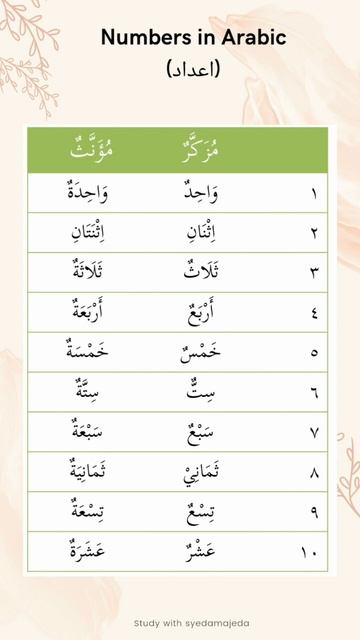 Numbers in Arabic
(اعداد)
مُزَكَّرٌ مُؤَنَّثٌ
١ وَاحِدٌ وَاحِدَةٌ
٢ اِثْنَانِ اِثْنَتَانِ
٣ ثَلَاثٌ ثَلَاثَةٌ
٤ أَرْبَعٌ أَرْبَعَةٌ
٥ خَمْسٌ خَمْسَةٌ
٦ سِتٌّ سِتَّةٌ
٧ سَبْعٌ سَبْعَةٌ
٨ ثَمَانِيْ ثَمَانِيَةٌ
٩ تِسْعٌ تِسْعَةٌ
١٠ عَشْرٌ عَشَرَةٌ
Study with syedamajeda